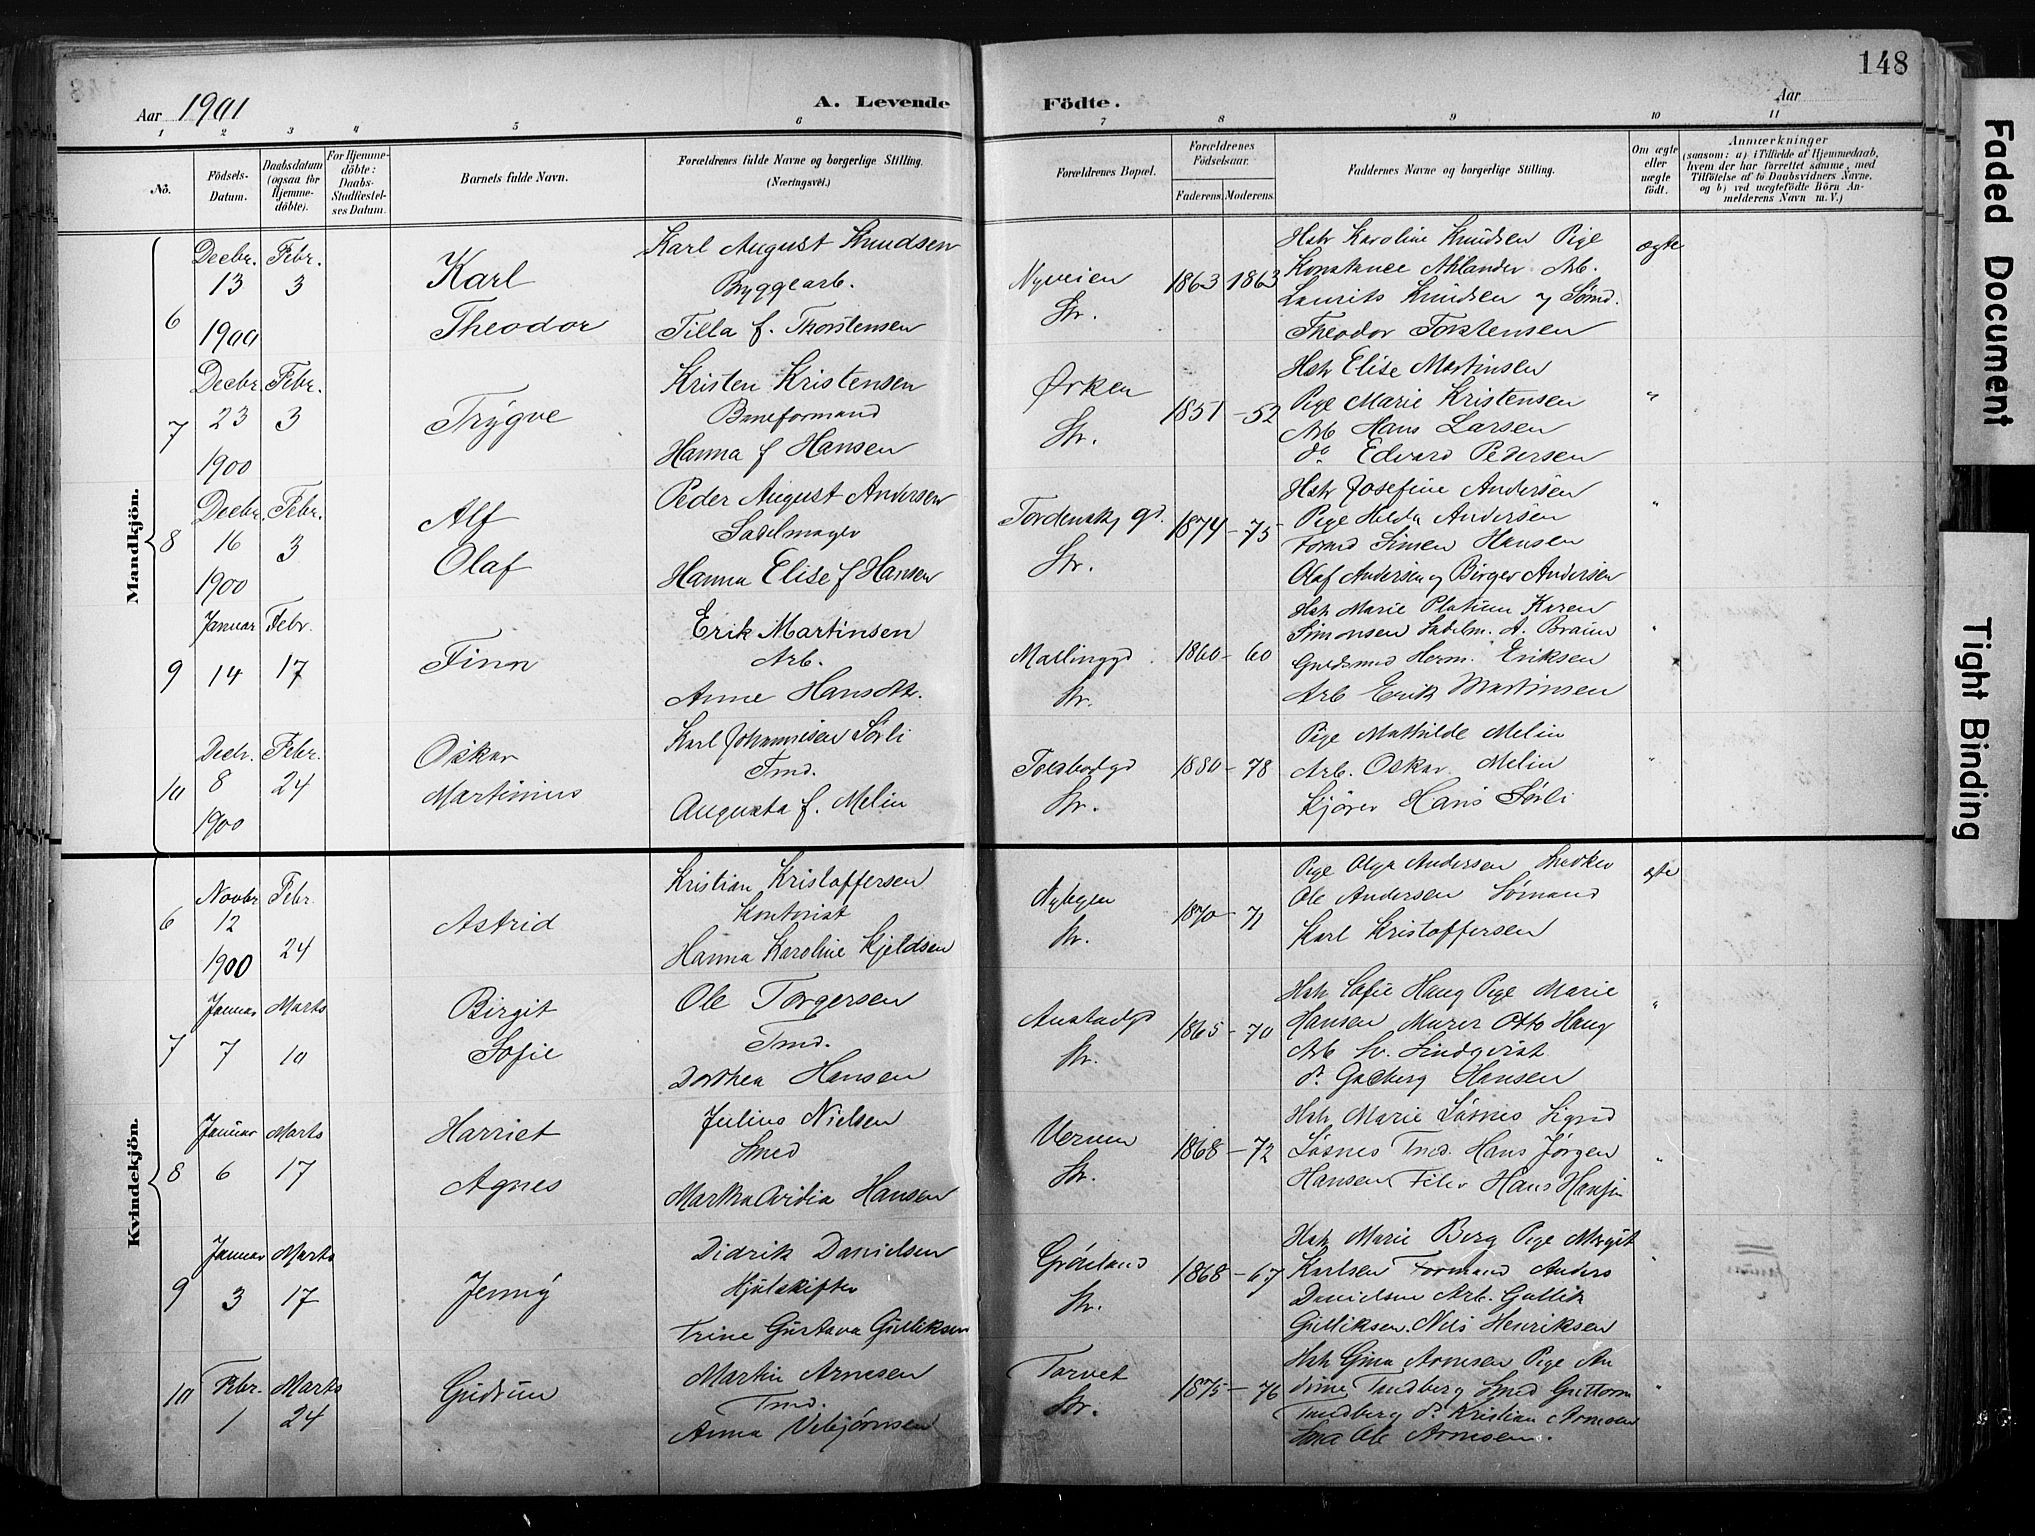 148
Aar 1901
A. Levende Födte.
Aar
1 2 3 4 5 6 7 8 9 10 11
No.
Födsels-Datum.
Daabsdatum (ogsaa for Hjemme-döbte).
For Hjemme-döbte: Daabs-Stadfæstel-ses Datum.
Barnets fulde Navn.
Forældrenes fulde Navne og borgerlige Stilling. (Næringsvei.)
Forældrenes Bopæl.
Forældrenes Födselsaar.
Faderens. Moderens.
Faddernes Navne og borgerlige Stilling.
Om ægte eller uægte födt.
Anmærkninger
(saasom: a) i Tilfælde af Hjemmedaab,
hvem der har forrettet samme, med
Tilföielse af to Daabsvidners Navne,
og b) ved uægtefödte Börn An-
melderens Navn m. V.)
Mandkjön.
6
Decbr. 13 1900
Febr. 3
Karl
Theodor
Karl August Knudsen
Byggearb.
Tilla f. Thorstensen
Nyveien
Str.
1863 1863
Hstr Karoline Knudsen Pige
Konstance Ahlander Arb.
Laurits Knudsen og Sømd.
Theodor Torstensen
ægte
7
Decbr. 23 1900
Febr. 3
Trygve
Kristen Kristensen
Hanna f Hansen
Ørken
Str.
1851 - 52
Hstr Elise Martinsen
Pige Marie Kristensen
Arb Hans Larsen
do Edvard Pedersen
"
8
Decbr. 16 1900
Febr. 3
Alf
Olaf
Peder August Andersen
Sadelmager
Hanna Elise f Hansen
Tordenskj gd.
Str.
1874 - 75
Hstr Josefine Andersen
Pige Hilda Andersen
Formd Simen Hansen
Olaf Andersen og Birger Andersen
"
9
Januar 14
Febr. 17
Finn
Erik Martinsen
Arb.
Anne Hansdtr.
Mallinggd
Str.
1860 - 60
Hstr Marie Platum Karen
Simonsen Sadelm. A. Braun
Guldsmed Herm. Eriksen
Arb Erik Martinsen
"
10
Decbr. 8 1900
Febr. 24
Oskar
Martinius
Karl Johannisen Sørli
Tmd.
Augusta f. Melin
Tolsbodgd
Str.
1880 - 78
Pige Mathilde Melin
Arb. Oskar Melin
Kjører Hans Sørli
"
Kvindekjön.
6
Novbr 12 1900
Febr. 24
Astrid
Kristian Kristoffersen
Kontorist
Hanna Karoline Kjeldsen
Nybyen
Str.
1870 - 71
Pige Olga Andersen Snedker
Ole Andersen Sømand
Karl Kristoffersen
ægte
7
Januar 7
Marts 10
Birgit
Sofie
Ole Torgersen
Tmd.
Dorthea Hansen
Str.
1865 - 70
Hstr Sofie Haug Pige Marie
Hansen Murer Otto Haug
Arb Lindqvist
do Hansen
"
8
Januar 6
Marts 17
Harriet
Agnes
Julius Nielsen
Smed
Martha Hansen
Verven
Str.
1868 - 72
Hstr Marie Løsnes Sigrid
Løsnes Tmd. Hans Jørgen
Hansen Filer Hans Hansen
"
9
Januar 3
Marts 17
Jenny
Didrik Danielsen
Hjulskifter
Trine Gustava Gulliksen
Grønland
Str.
1868 - 67
Hstr Marie Berg Pige Margit
Karlsen Formand Anders
Danielsen Arb. Gullik
Gulliksen. Nils Henriksen
"
10
Febr. 1
Marts 24
Gudrun
Martin Arnesen
Tmd.
Anna Vebjørnsen
Torvet
Str.
1875 - 76
Hstr Gina Arnesen Pige An
drine Tundberg Smed Guttorm
Tundberg do Kristian Arnesen
Ole Arnesen.
"
Faded Document
Tight Binding